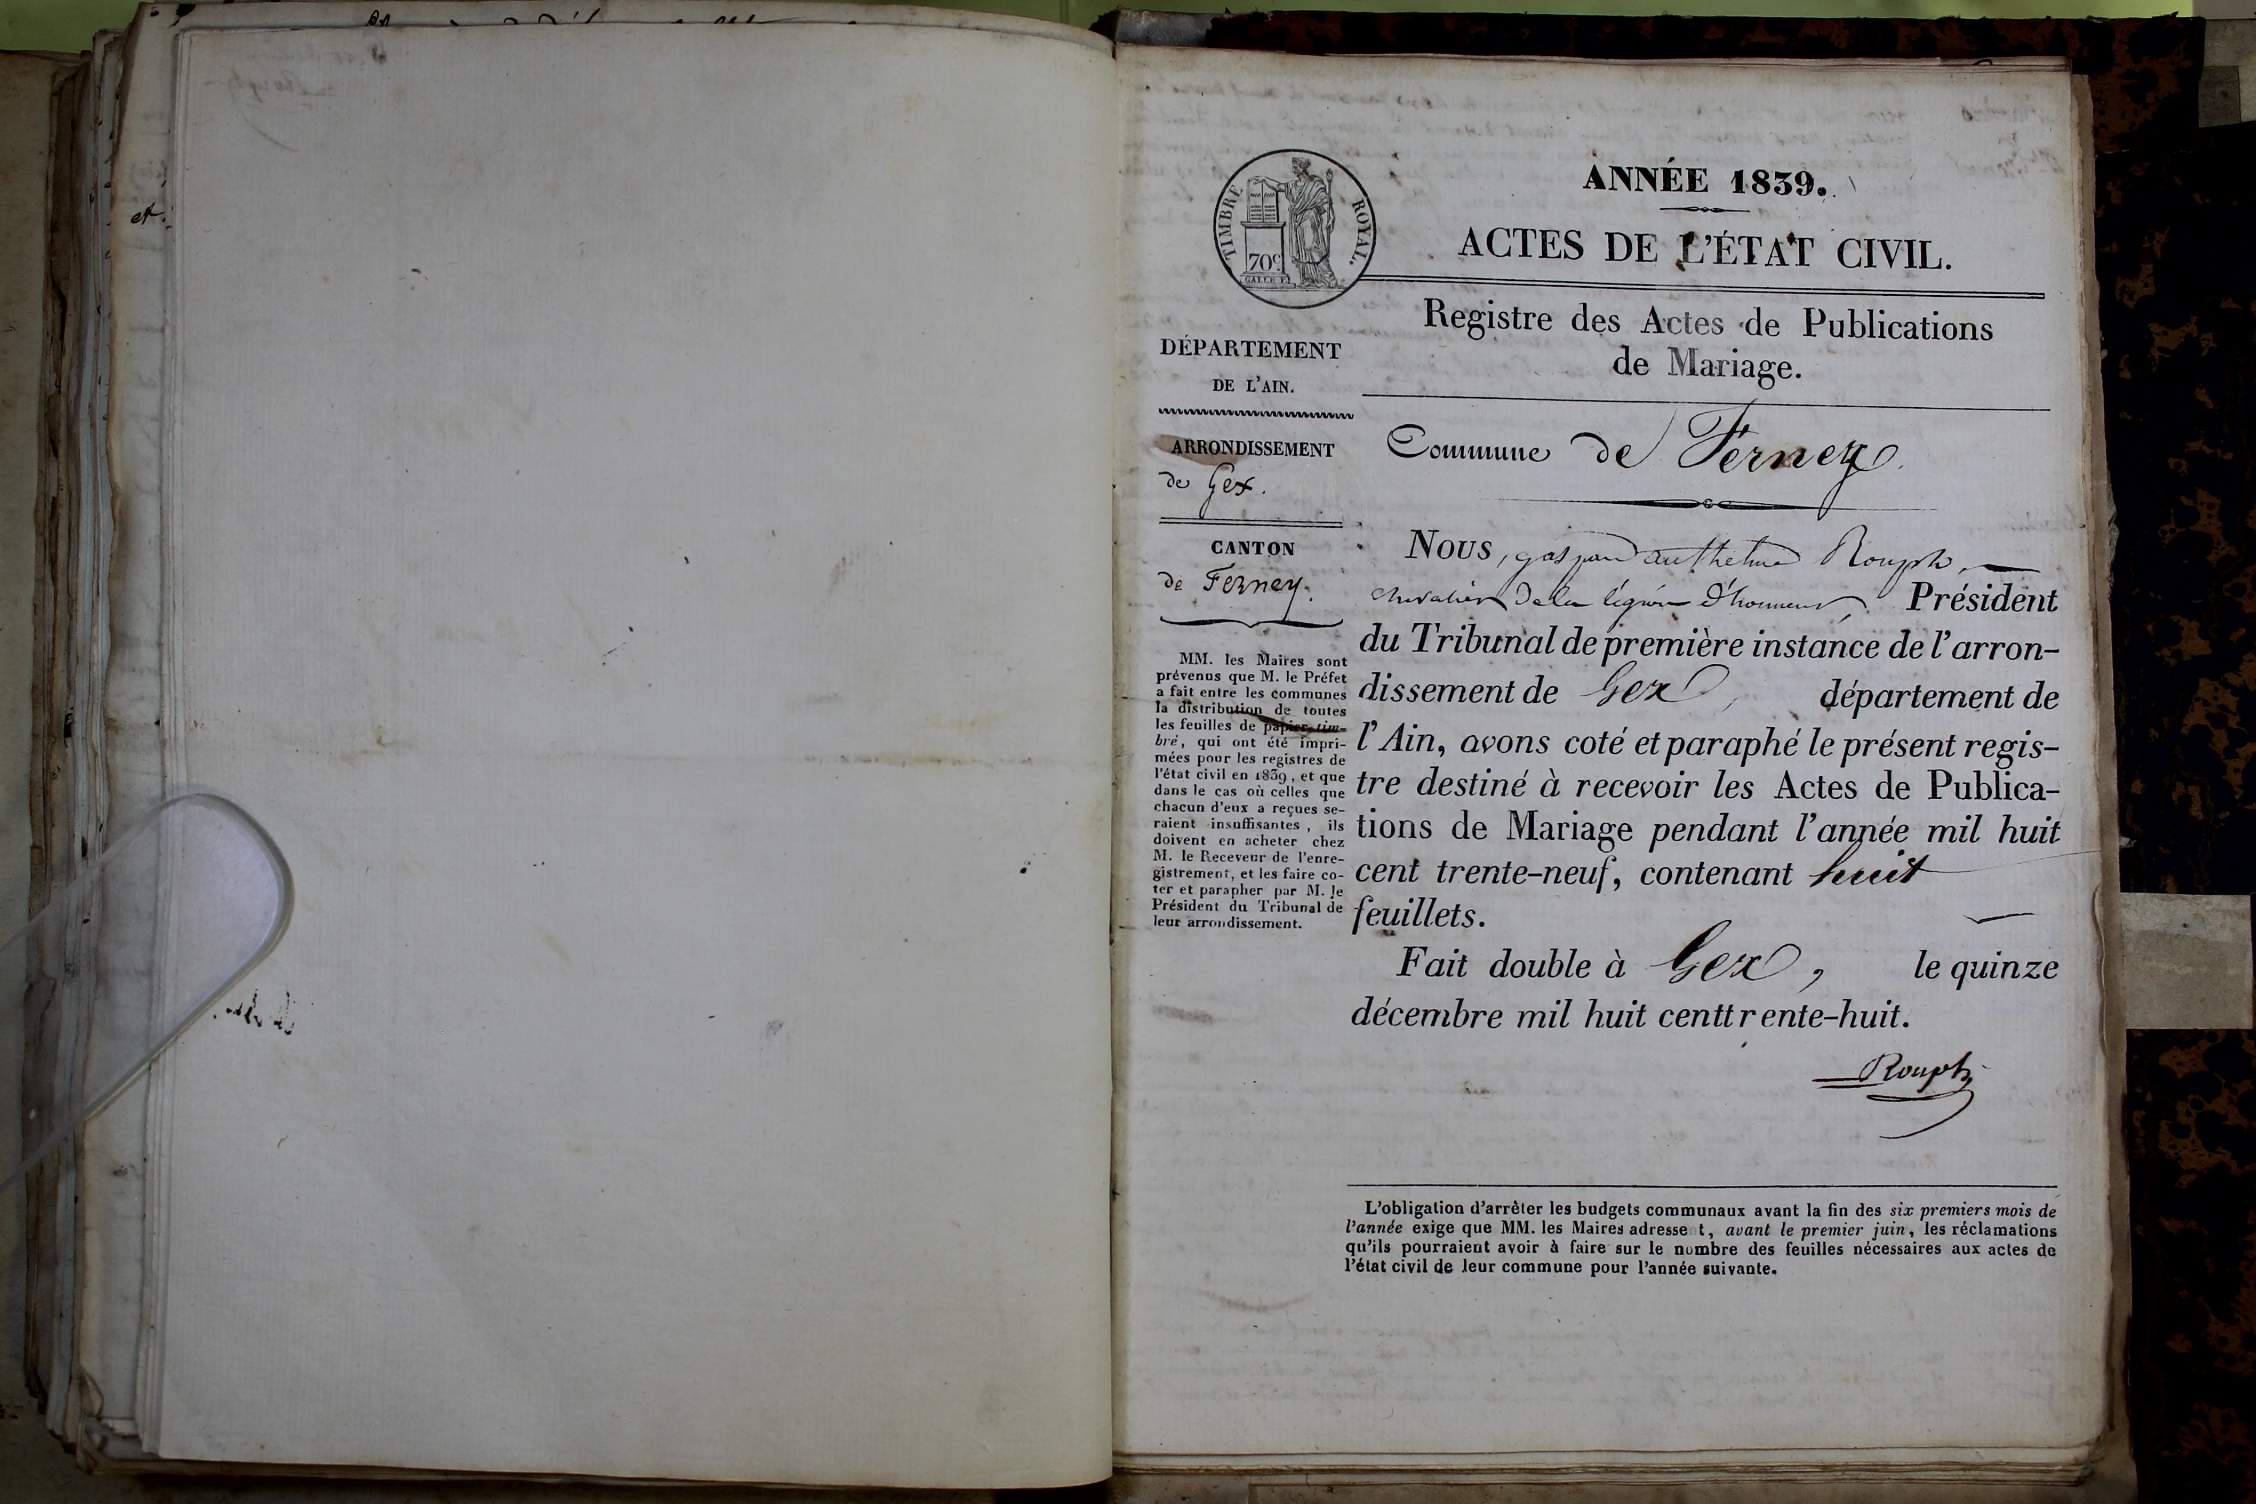 et.
TIMBRE ROYAL.
70c
ANNÉE 1839.
ACTES DE L'ÉTAT CIVIL.
Registre des Actes de Publications
de Mariage.
DÉPARTEMENT
DE L'AIN.
ARRONDISSEMENT
de Gex.
CANTON
de Ferney.
MM. les Maires sont
prévenus que M. le Préfet
a fait entre les communes
la distribution de toutes
les feuilles de papier tim-
bré, qui ont été impri-
mées pour les registres de
l'état civil en 1839, et que
dans le cas où celles que
chacun d'eux a reçues se-
raient insuffisantes, ils
doivent en acheter chez
M. le Receveur de l'enre-
gistrement, et les faire co-
ter et parapher par M. le
Président du Tribunal de
leur arrondissement.
Commune de Ferney.
Nous, gaspard anthelme Rouph,
chevalier de la légion d'honneur, Président
du Tribunal de première instance de l'arron-
dissement de Gex, département de
l'Ain, avons coté et paraphé le présent regis-
tre destiné à recevoir les Actes de Publica-
tions de Mariage pendant l'année mil huit
cent trente-neuf, contenant huit
feuillets.
Fait double à Gex, le quinze
décembre mil huit centtrente-huit.
Rouph
L'obligation d'arrêter les budgets communaux avant la fin des six premiers mois de
l'année exige que MM. les Maires adressent, avant le premier juin, les réclamations
qu'ils pourraient avoir à faire sur le nombre des feuilles nécessaires aux actes de
l'état civil de leur commune pour l'année suivante.